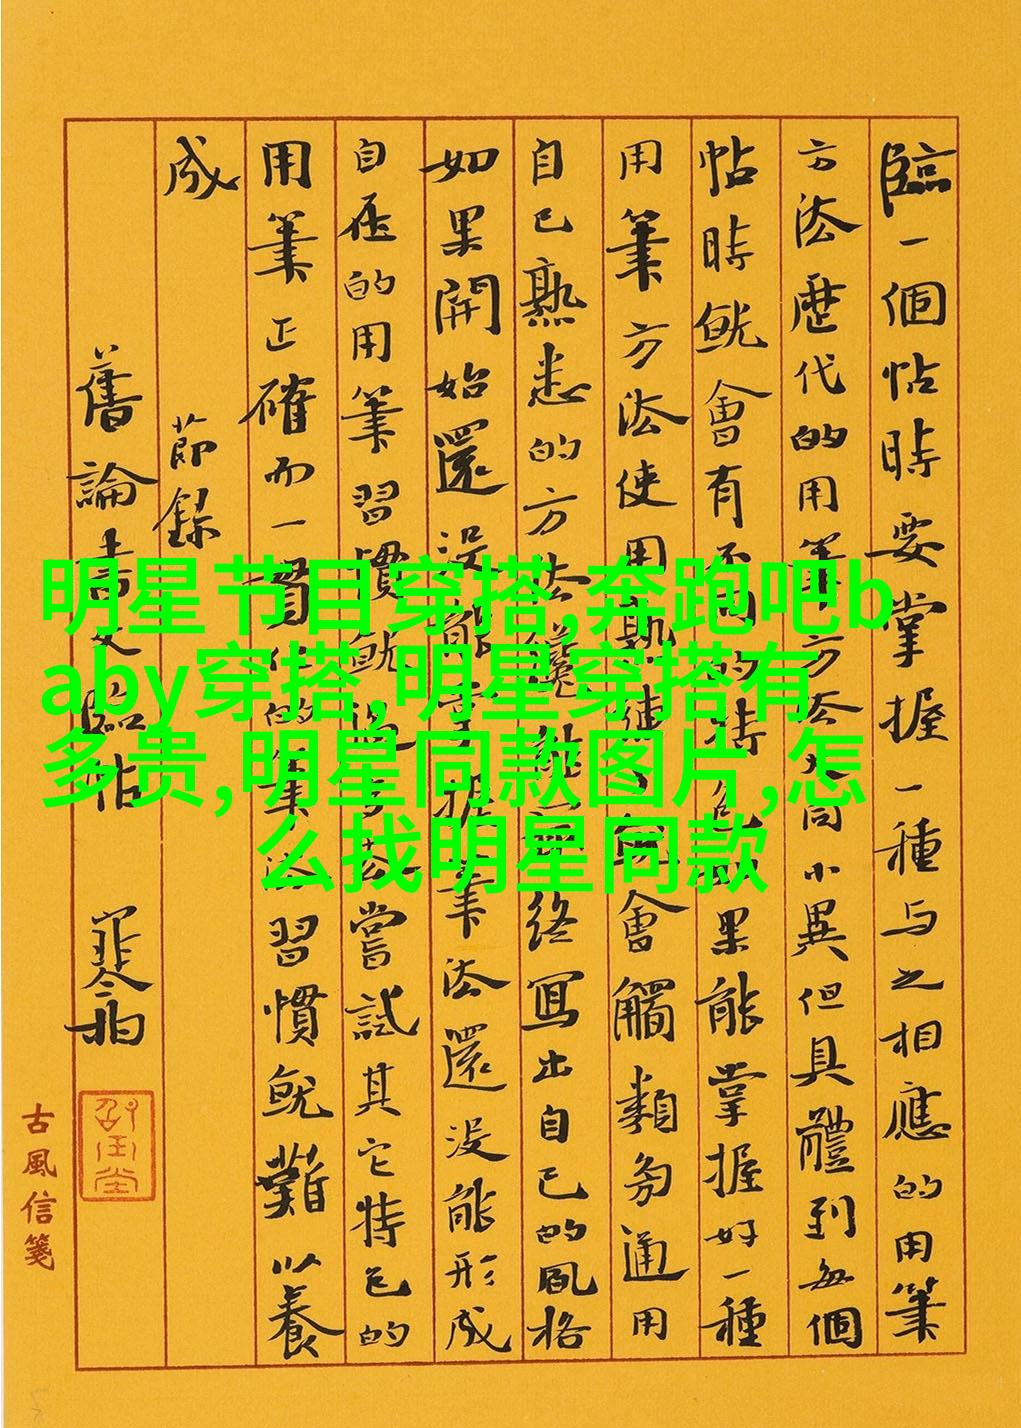 臨一個帖時要掌握一種与之相應的用筆
方法歷代的用筆方法大同小異但具體到每個
帖時就會有不同的特色如果能掌握好一種
用筆方法使用熟練了就會觸類旁通用
自己熟悉的方法終寫出自己的風格
如果開始還沒能掌握筆法還沒能形成
自在的用筆習慣就嘗試其它特色的
用筆正確而一貫的筆法習慣就難以養
成 節錄
舊論書文 臨帖
古風信箋
明星节目穿搭,奔跑吧b
aby穿搭,明星穿搭有
多贵,明星同款图片,怎
么找明星同款